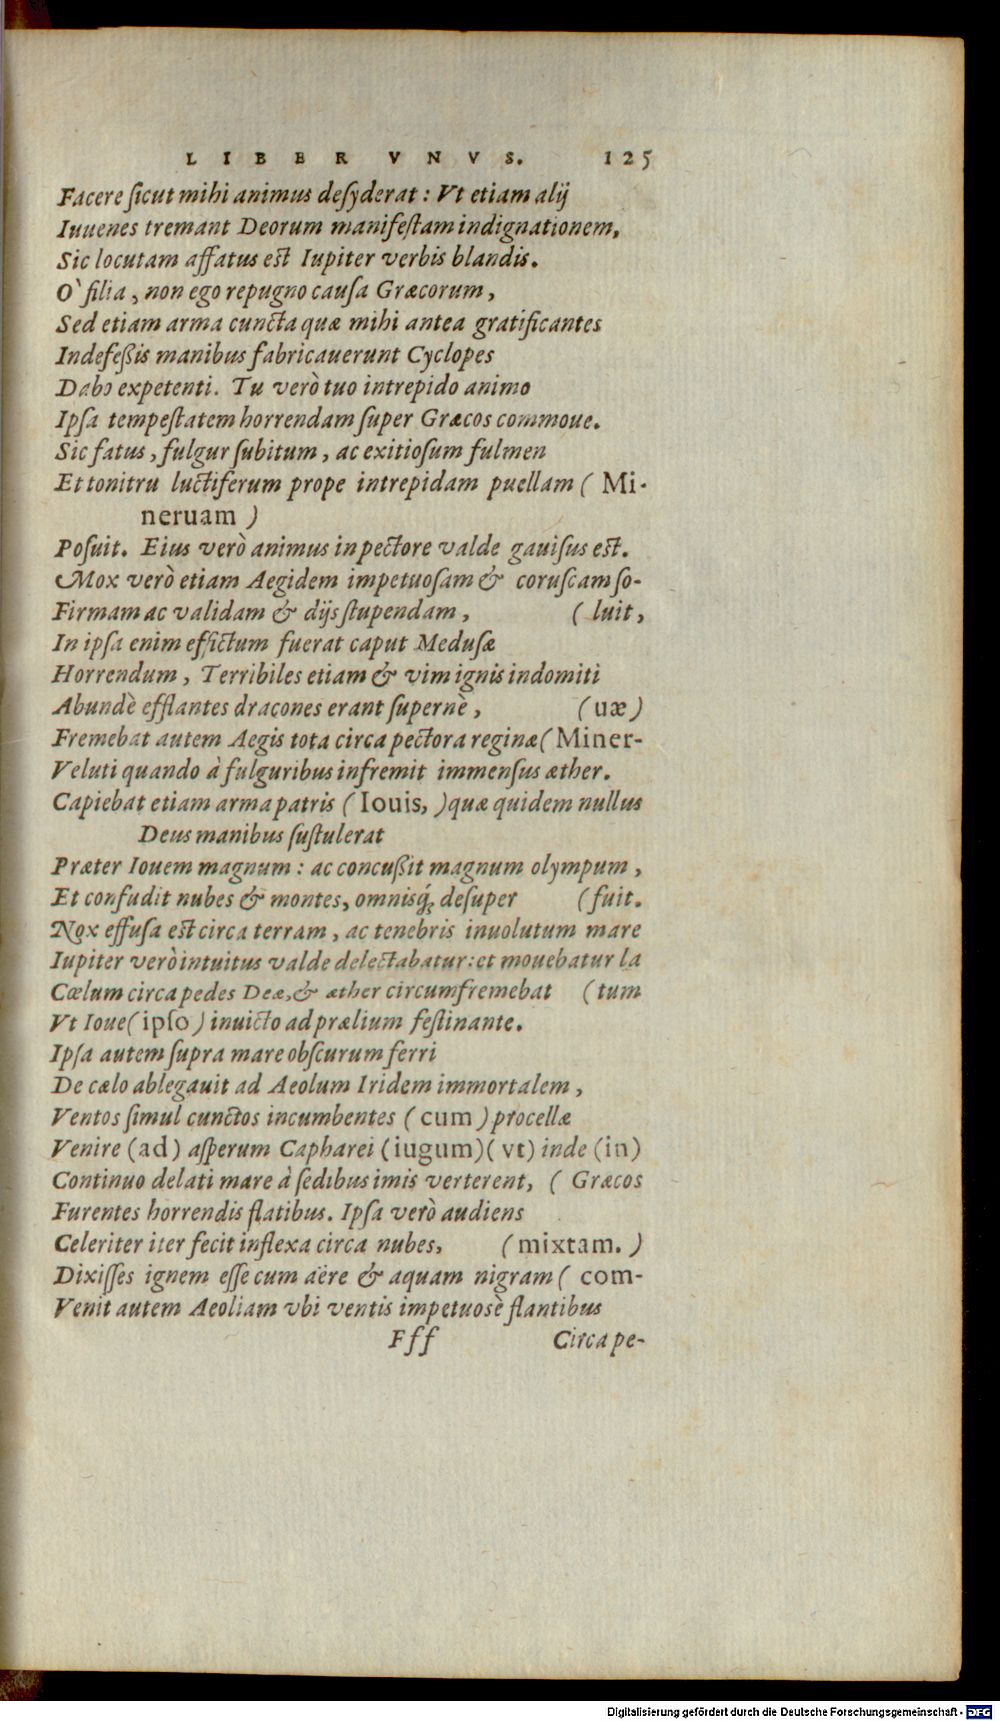 LIBER VNVS. 125
Facere ſicut mihi animus deſyderat : Vt etiam alij
Iuuenes tremant Deorum manifeſtam indignationem,
Sic locutam affatus eſt Iupiter verbis blandis.
O` filia, non ego repugno cauſa Græcorum,
Sed etiam arma cuncta quæ mihi antea gratificantes
Indefeßis manibus fabricauerunt Cyclopes
Dabo expetenti. Tu verò tuo intrepido animo
Ipſa tempeſtatem horrendam ſuper Græcos commoue.
Sic fatus, fulgur ſubitum, ac exitioſum fulmen
Et tonitru luctiferum prope intrepidam puellam ( Mi-
neruam )
Poſuit. Eius verò animus in pectore valde gauiſus eſt.
Mox verò etiam Aegidem impetuoſam & coruſcam ſo-
Firmam ac validam & dijs ſtupendam, ( luit,
In ipſa enim effictum fuerat caput Meduſæ
Horrendum, Terribiles etiam & vim ignis indomiti
Abundè efflantes dracones erant ſupernè, ( uæ )
Fremebat autem Aegis tota circa pectora reginæ ( Miner-
Veluti quando à fulguribus infremit immenſus æther.
Capiebat etiam arma patris ( Iouis, ) quæ quidem nullus
Deus manibus ſuſtulerat
Præter Iouem magnum : ac concußit magnum olympum,
Et confudit nubes & montes, omnisq́; deſuper ( fuit.
Nox effuſa eſt circa terram, ac tenebris inuolutum mare
Iupiter verò intuitus valde delectabatur: et mouebatur la
Cœlum circa pedes Deæ, & æther circumfremebat ( tum
Vt Ioue ( ipſo ) inuicto ad prælium feſtinante.
Ipſa autem ſupra mare obſcurum ferri
De cælo ablegauit ad Aeolum Iridem immortalem,
Ventos ſimul cunctos incumbentes ( cum ) procellæ
Venire (ad) aſperum Capharei (iugum) ( vt) inde (in)
Continuo delati mare à ſedibus imis verterent, ( Græcos
Furentes horrendis flatibus. Ipſa verò audiens
Celeriter iter fecit inflexa circa nubes, ( mixtam. )
Dixiſſes ignem eſſe cum aëre & aquam nigram ( com-
Venit autem Aeoliam vbi ventis impetuosè flantibus
Fff Circa pe-
Digitalisierung gefördert durch die Deutsche Forschungsgemeinschaft - DFG